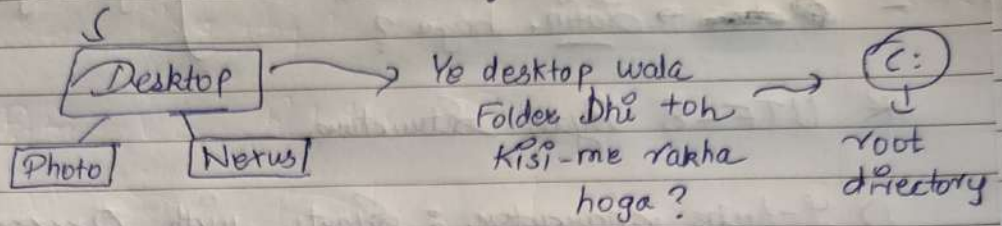 Desktop
Photo
Nexus
Ye desktop wala
Folder bhi toh
Kisi-me rakha
hoga ?
C:
root
directory